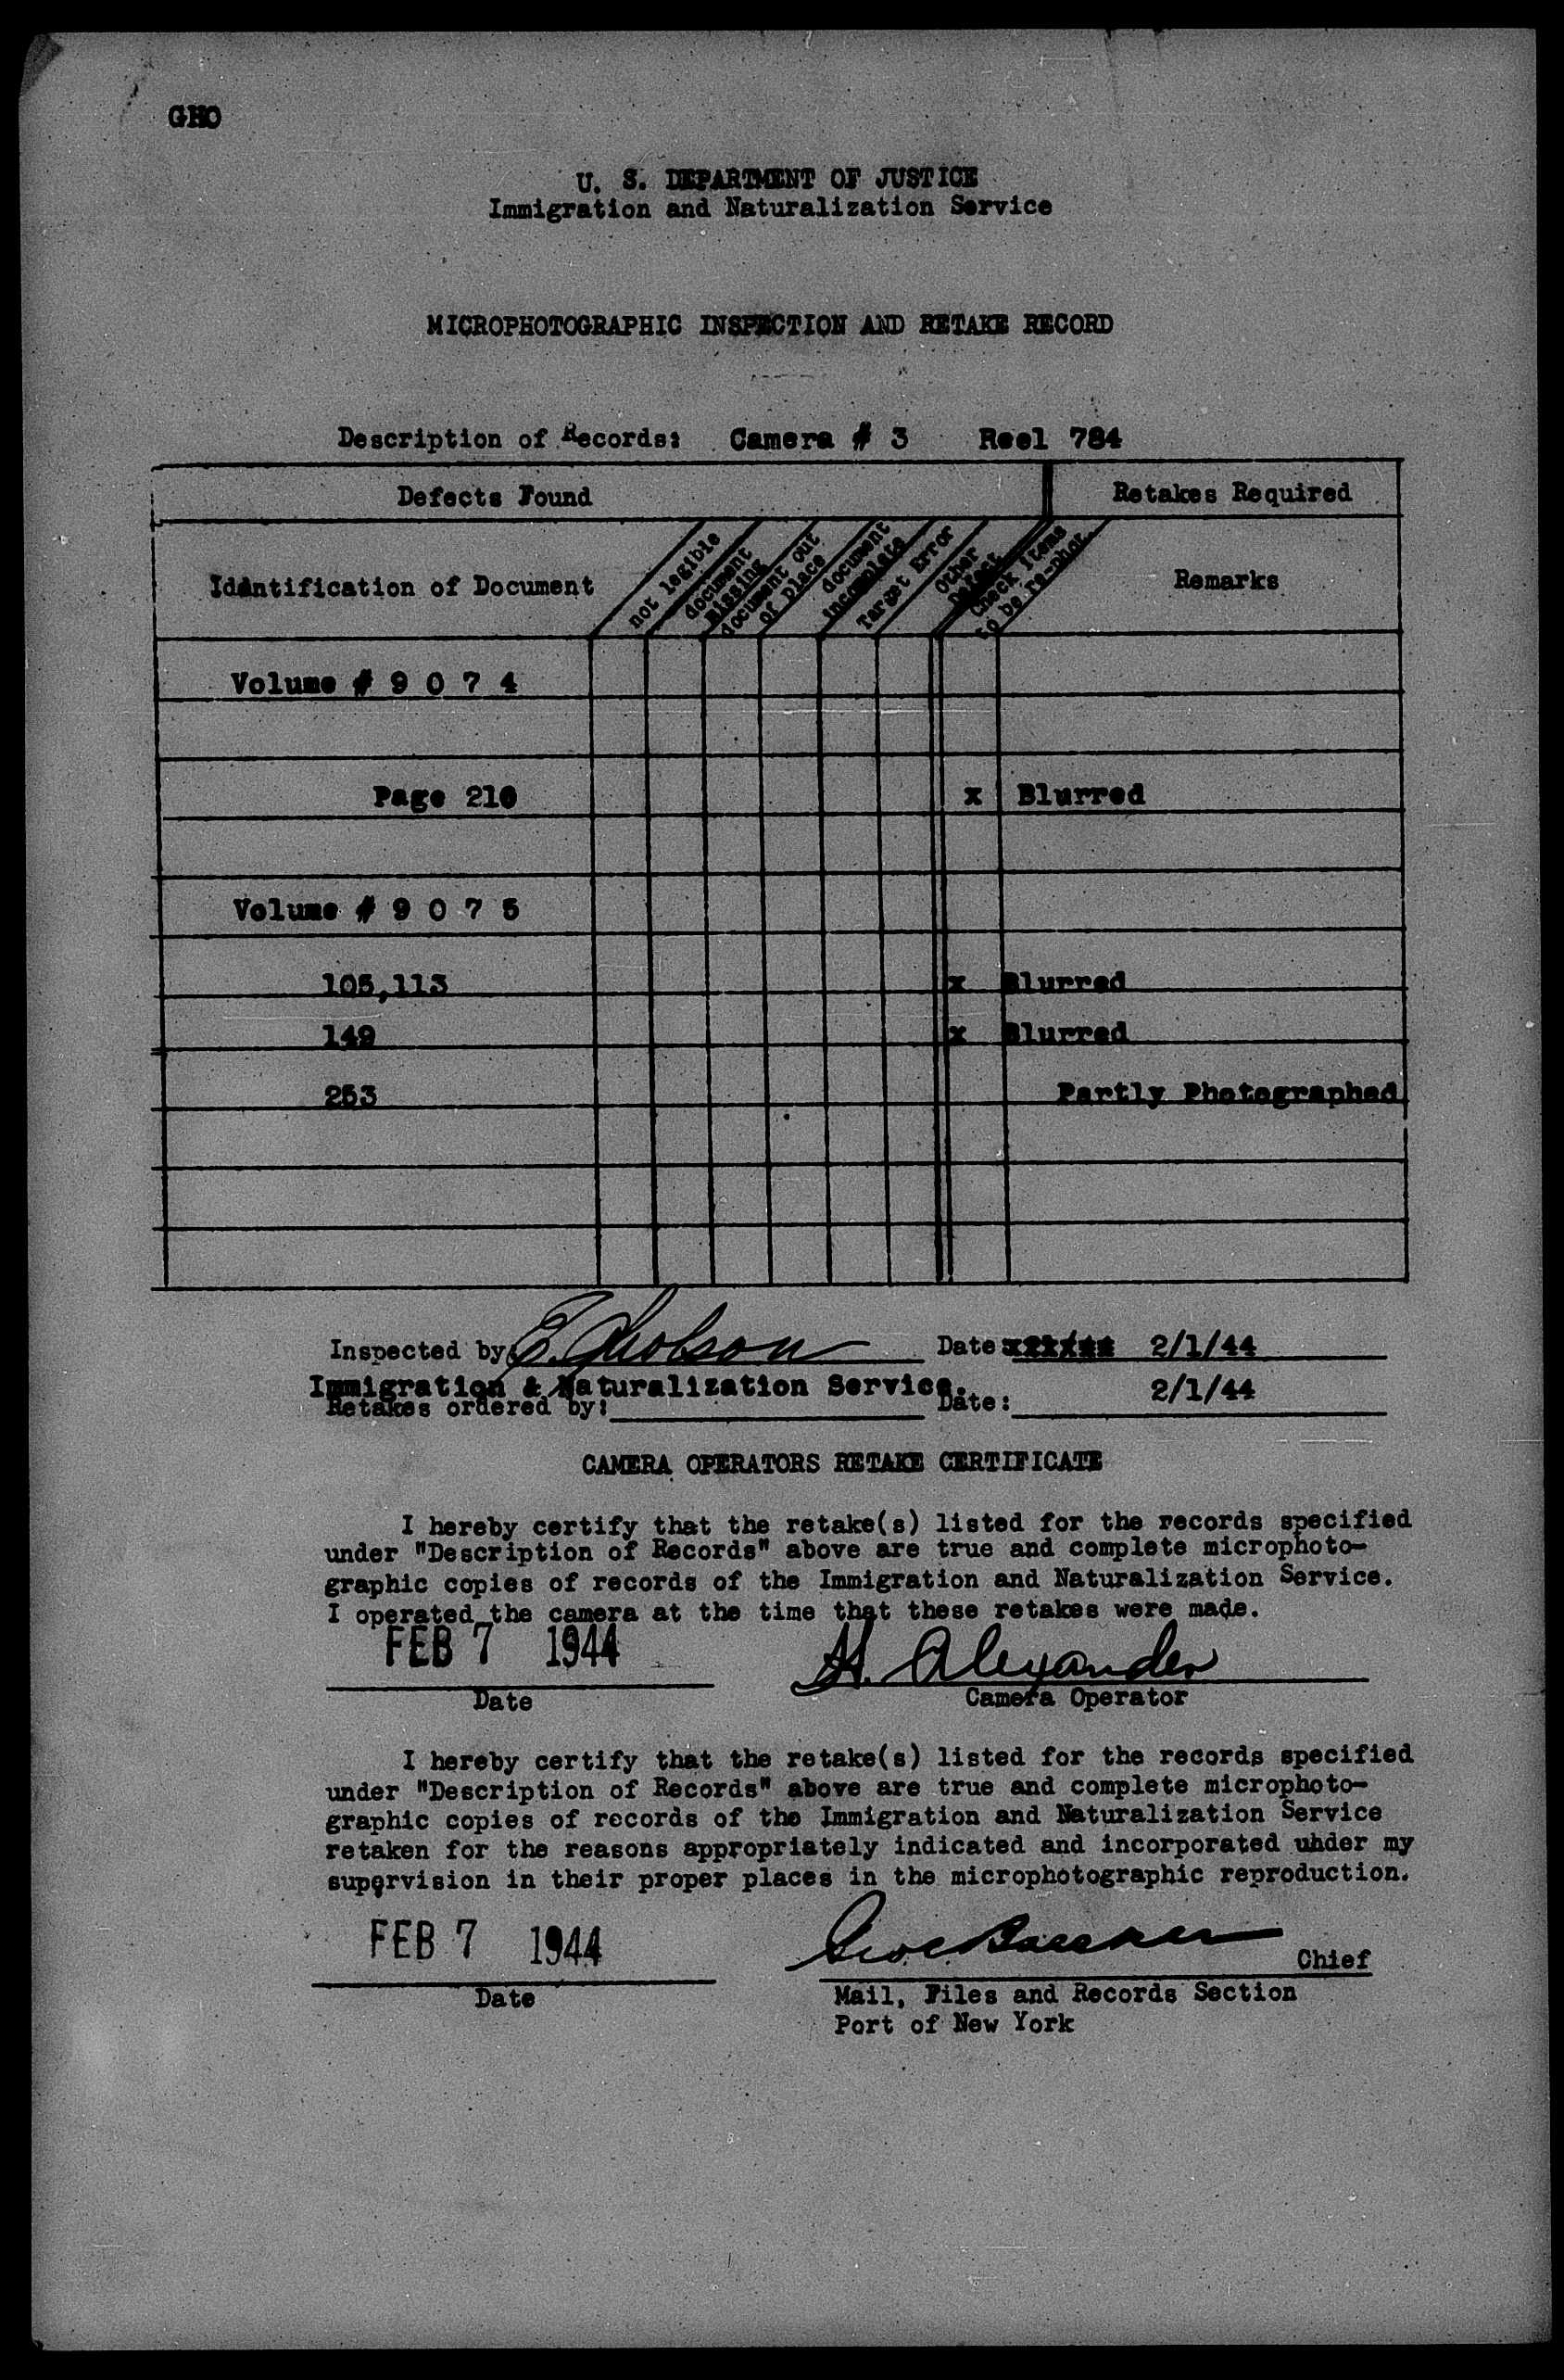 GHO
U. S. DEPARTMENT OF JUSTICE
Immigration and Naturalization Service
MICROPHOTOGRAPHIC INSPECTION AND RETAKE RECORD
Description of Records: Camera # 3 Reel 784
Defects Found Retakes Required
Identification of Document
not legible
document
missing
document out
of place
document
incomplete
Target Error
Other
Defect
Check Items
to be re-phot.
Remarks
Volume # 9 0 7 4
Page 210 x Blurred
Volume # 9 0 7 5
105,113 x Blurred
149 x Blurred
253 Partly Photographed
Inspected by E. Date 2/1/44
Immigration & Naturalization Service. 2/1/44
Retakes ordered by: Date:
CAMERA OPERATORS RETAKE CERTIFICATE
I hereby certify that the retake(s) listed for the records specified
under "Description of Records" above are true and complete microphoto-
graphic copies of records of the Immigration and Naturalization Service.
I operated the camera at the time that these retakes were made.
FEB 7 1944 H. Alexander
Date Camera Operator
I hereby certify that the retake(s) listed for the records specified
under "Description of Records" above are true and complete microphoto-
graphic copies of records of the Immigration and Naturalization Service
retaken for the reasons appropriately indicated and incorporated under my
supervision in their proper places in the microphotographic reproduction.
FEB 7 1944
Chief
Date Mail, Files and Records Section
Port of New York